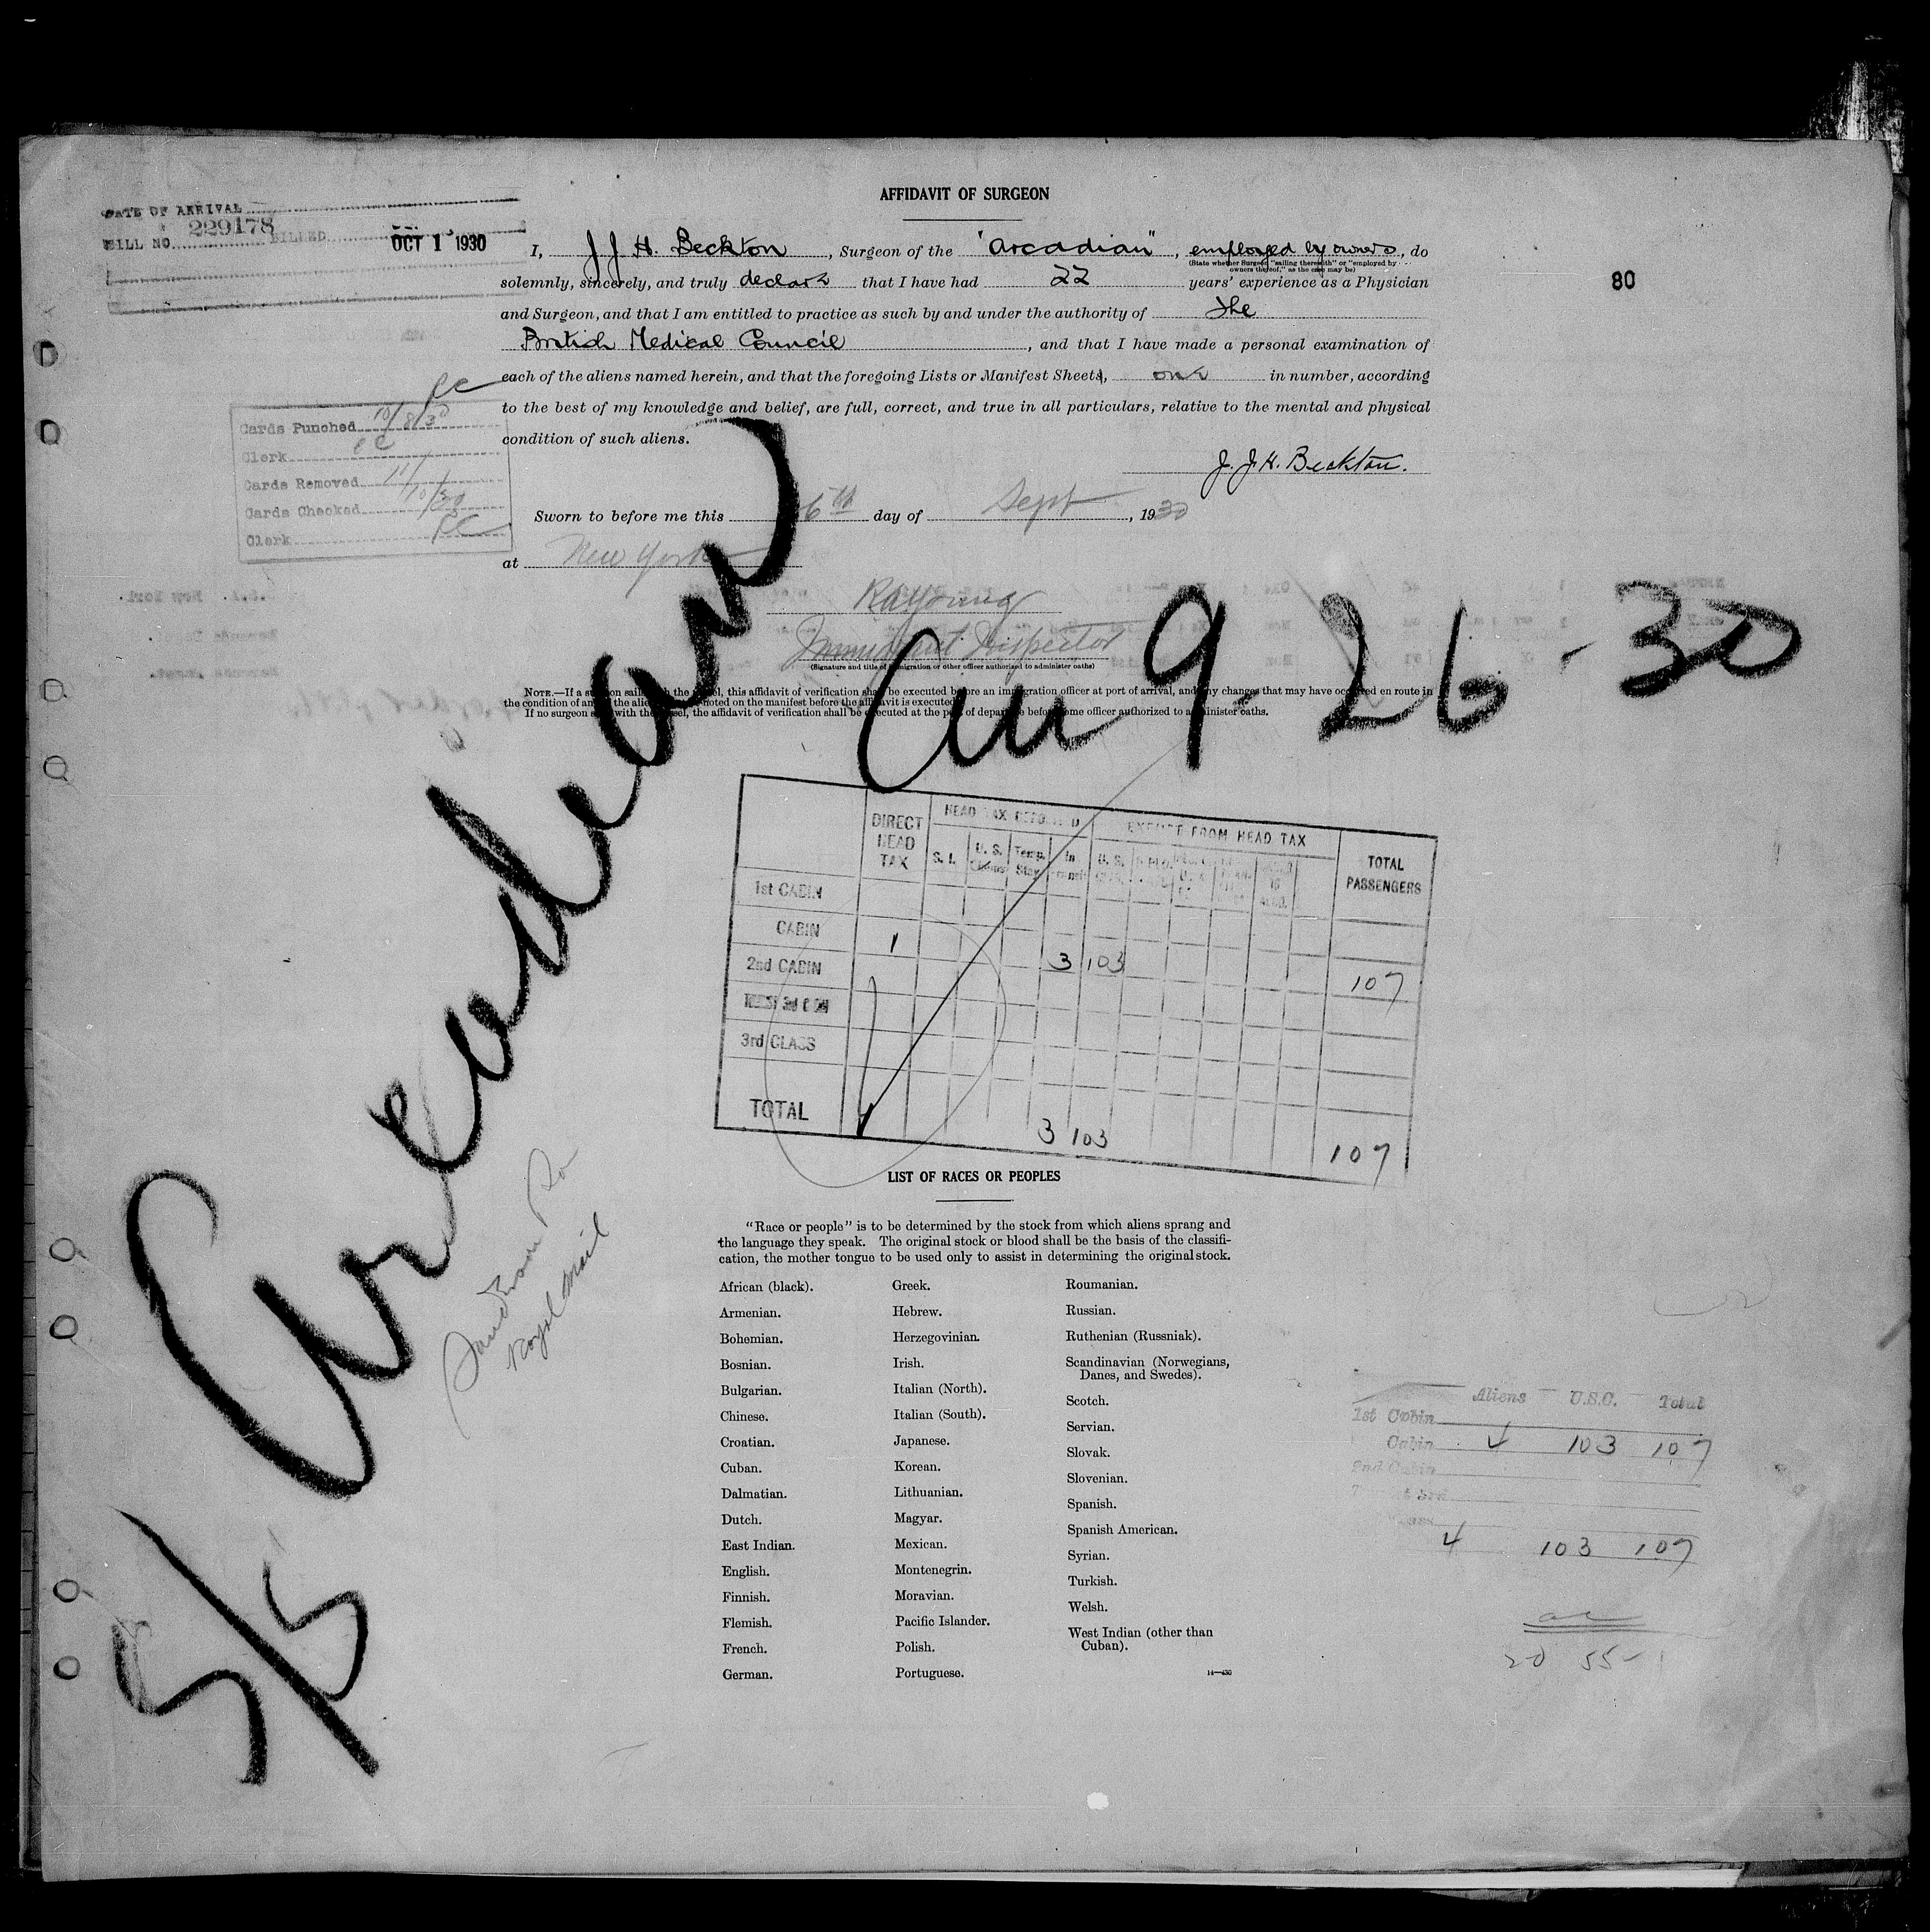 AFFIDAVIT OF SURGEON
DATE OF ARRIVAL
BILL NO. 229178 BILLED OCT 1 1930
80
I, J J H. Beckton, Surgeon of the "Arcadian", employed by owners, do
(State whether Surgeon "sailing therewith" or "employed by owners thereof," as the case may be)
solemnly, sincerely, and truly declare that I have had 22 years' experience as a Physician
and Surgeon, and that I am entitled to practice as such by and under the authority of The
British Medical Council, and that I have made a personal examination of
each of the aliens named herein, and that the foregoing Lists or Manifest Sheets, one in number, according
to the best of my knowledge and belief, are full, correct, and true in all particulars, relative to the mental and physical
condition of such aliens.
J. J. H. Beckton.
Cards Punched 10/8/30
Clerk
Cards Removed
Cards Checked
Clerk
Sworn to before me this 26th day of Sept, 1930
at New York
Immigrant Inspector
(Signature and title of immigration or other officer authorized to administer oaths)
NOTE.—If a surgeon sails with the vessel, this affidavit of verification shall be executed before an immigration officer at port of arrival, and any changes that may have occurred en route in
the condition of any of the aliens noted on the manifest before the affidavit is executed.
If no surgeon sails with the vessel, the affidavit of verification shall be executed at the port of departure before some officer authorized to administer oaths.
S/S Arcadian
Arr 9-26-30
Royal Mail
DIRECT HEAD TAX
HEAD TAX
S. I. U. S. Temp. Stay In Transit
EXEMPT FROM HEAD TAX
U. S.
TOTAL PASSENGERS
1st CABIN
CABIN 1 3 103 107
2nd CABIN
3rd CLASS
TOTAL 1 3 103 107
LIST OF RACES OR PEOPLES
"Race or people" is to be determined by the stock from which aliens sprang and
the language they speak. The original stock or blood shall be the basis of the classifi-
cation, the mother tongue to be used only to assist in determining the original stock.
African (black).
Armenian.
Bohemian.
Bosnian.
Bulgarian.
Chinese.
Croatian.
Cuban.
Dalmatian.
Dutch.
East Indian.
English.
Finnish.
Flemish.
French.
German.
Greek.
Hebrew.
Herzegovinian.
Irish.
Italian (North).
Italian (South).
Japanese.
Korean.
Lithuanian.
Magyar.
Mexican.
Montenegrin.
Moravian.
Pacific Islander.
Polish.
Portuguese.
Roumanian.
Russian.
Ruthenian (Russniak).
Scandinavian (Norwegians,
Danes, and Swedes).
Scotch.
Servian.
Slovak.
Slovenian.
Spanish.
Spanish American.
Syrian.
Turkish.
Welsh.
West Indian (other than
Cuban).
14—430
Aliens U.S.C. Total
1st Cabin
Cabin 4 103 107
2nd Cabin
4 103 107
20 55